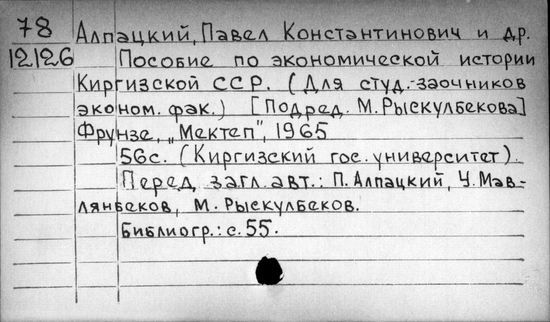 78 Алпацкий, Павел Константинович и др.
12126 Пособие по экономической истории
Киргизской ССР. (Для студ.-заочников
эконом. фак.) [Под ред. М. Рыскулбекова]
Фрунзе, „Мектеп", 1965
56с. (Киргизский гос. университет).
Перед загл. авт.: П. Алпацкий, Ч. Мав-
лянбеков, М. Рыскулбеков.
Библиогр.: с. 55.